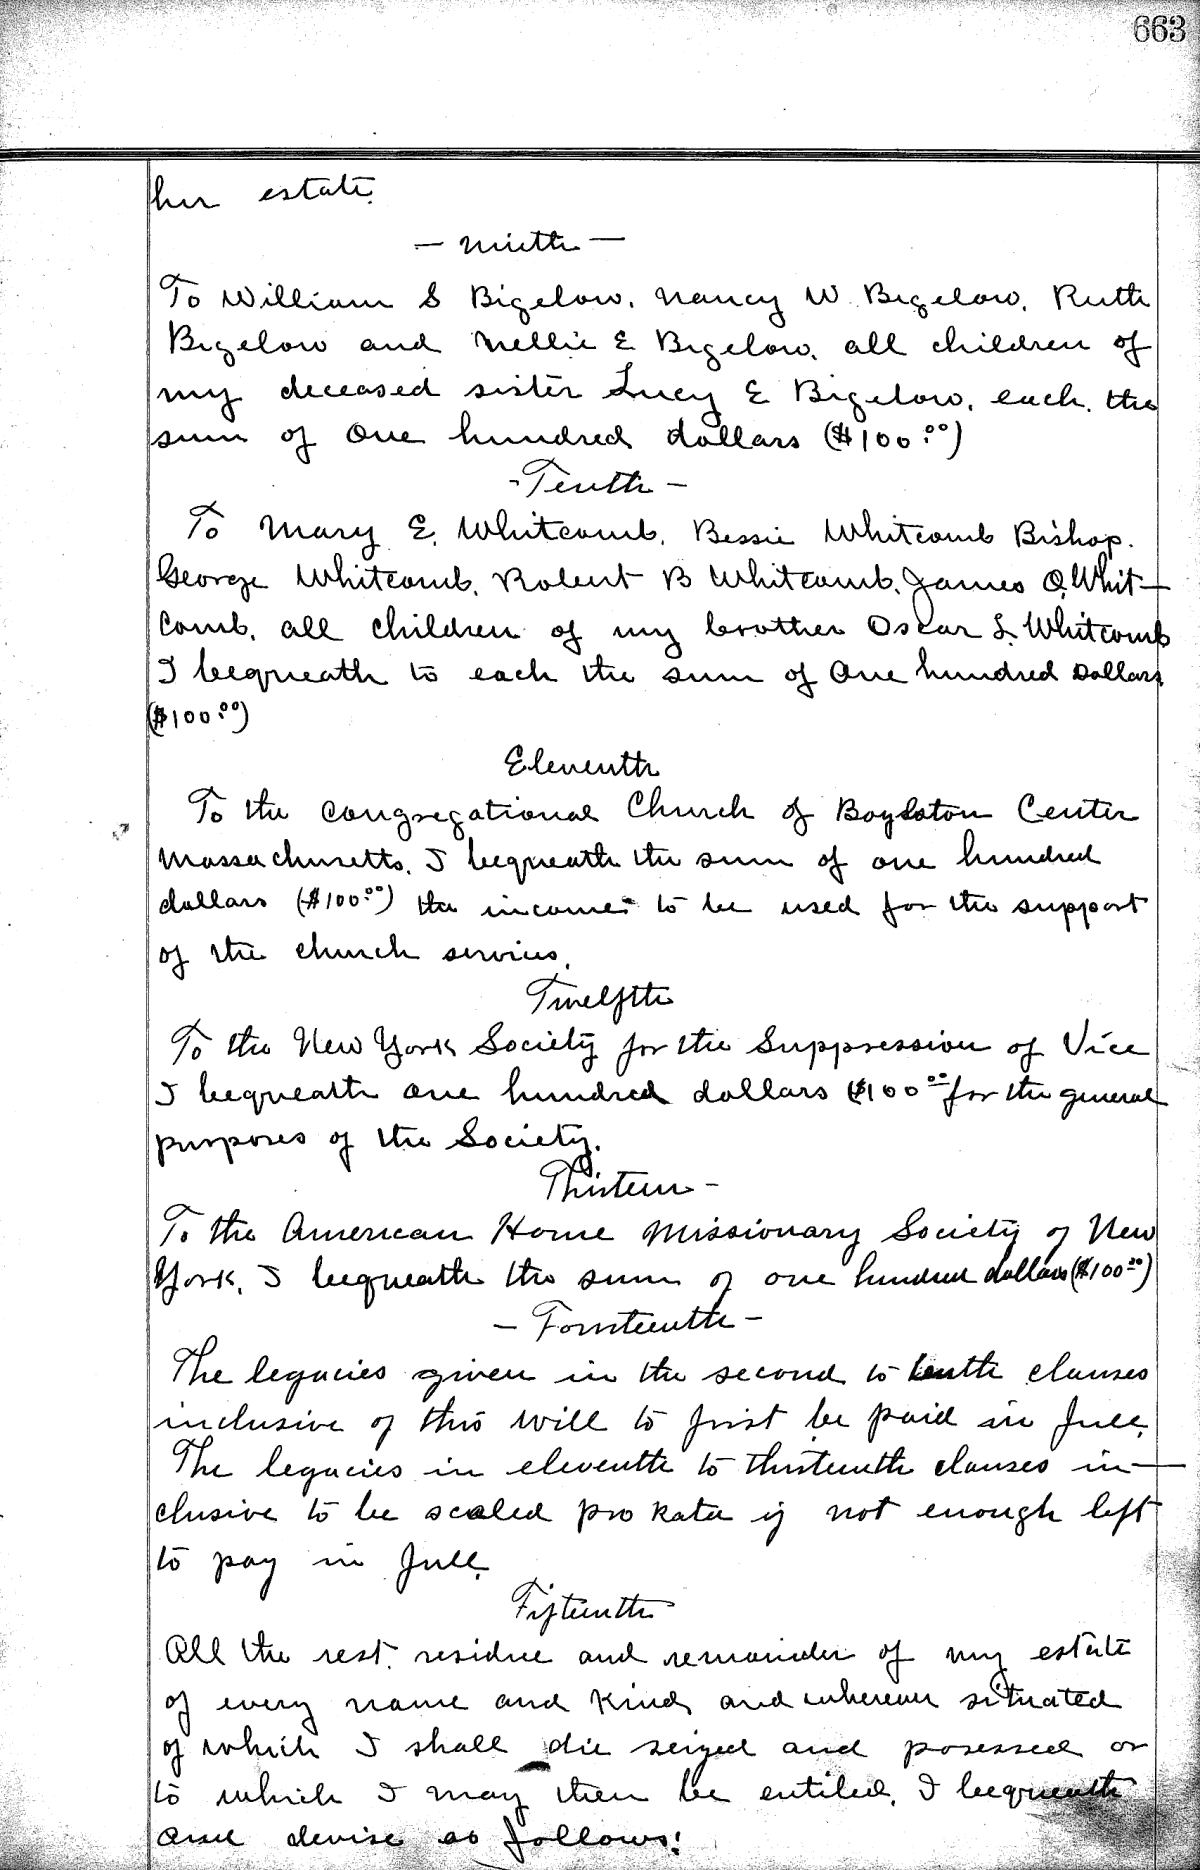 663
her estate.
— Ninth —
To William S Bigelow, Nancy W. Bigelow, Ruth
Bigelow and Nellie E Bigelow, all children of
my deceased sister Lucy E Bigelow, each, the
sum of One hundred dollars ($100.00)
- Tenth -
To Mary E. Whitcomb, Bessie Whitcomb Bishop.
George Whitcomb, Robert B Whitcomb, James O. Whit-
comb, all children of my brother Oscar L. Whitcomb
I bequeath to each the sum of One hundred Dollars
($100.00)
Eleventh
To the Congregational Church of Boylston Center
Massachusetts. I bequeath the sum of one hundred
dollars ($100.00) the income to be used for the support
of the church services.
Twelfth
To the New York Society for the Suppression of Vice
I bequeath one hundred dollars ($100.00 for the general
purposes of the Society.
Thirteen -
To the American Home Missionary Society of New
York, I bequeath the sum of one hundred dollars ($100.00)
— Fourteenth —
The legacies given in the second to tenth clauses
inclusive of this will to first be paid in full.
The legacies in eleventh to thirteenth clauses in-
clusive to be scaled pro rata if not enough left
to pay in full.
Fifteenth
All the rest, residue and remainder of my estate
of every name and kind, and wherever situated
of which I shall die seized and posessed or
to which I may then be entiled, I bequeath
and devise as follows: